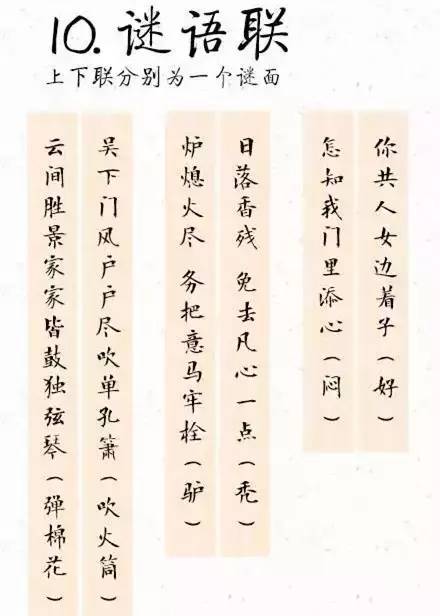 10.谜语联
上下联分别为一个谜面
你共人女边着子(好)
怎知我门里添心(闷)
日落香残 免去凡心一点(秃)
炉熄火尽 务把意马牢栓(驴)
吴下门风户户尽吹单孔箫(吹火筒)
云间胜景家家皆鼓独弦琴(弹棉花)